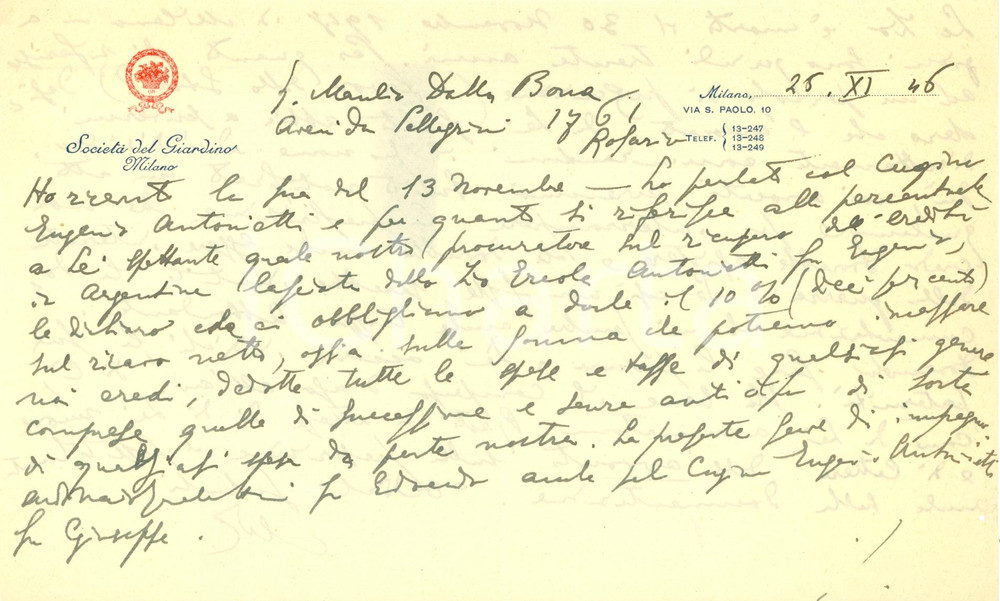 S. Manlio Dalla Bona
Avenida Pellegrini 1761
Rosario
Milano, 26. XI 46
VIA S. PAOLO. 10
TELEF. 13-247
13-248
13-249
Società del Giardino
Milano
Ho ricevuto la sua del 13 Novembre — Ho parlato col Cugino
Eugenio Antonietti e per quanto si riferisce alla percentuale
a Lei spettante quale nostro procuratore sul ricupero dell'eredità
in Argentina lasciata dallo Zio Ercole Antonietti fu Eugenio,
le dichiaro che ci obblighiamo a darle il 10% (Dieci per cento)
sul ricavo netto, ossia sulla somma che potremo incassare
noi eredi, dedotte tutte le spese e tasse di qualsiasi genere
comprese quelle di successione e senza anticipi di sorta
di qualsiasi spesa da parte nostra. La presente serve di impegno
fu Edoardo anche pel Cugino Eugenio Antonietti
fu Giuseppe.